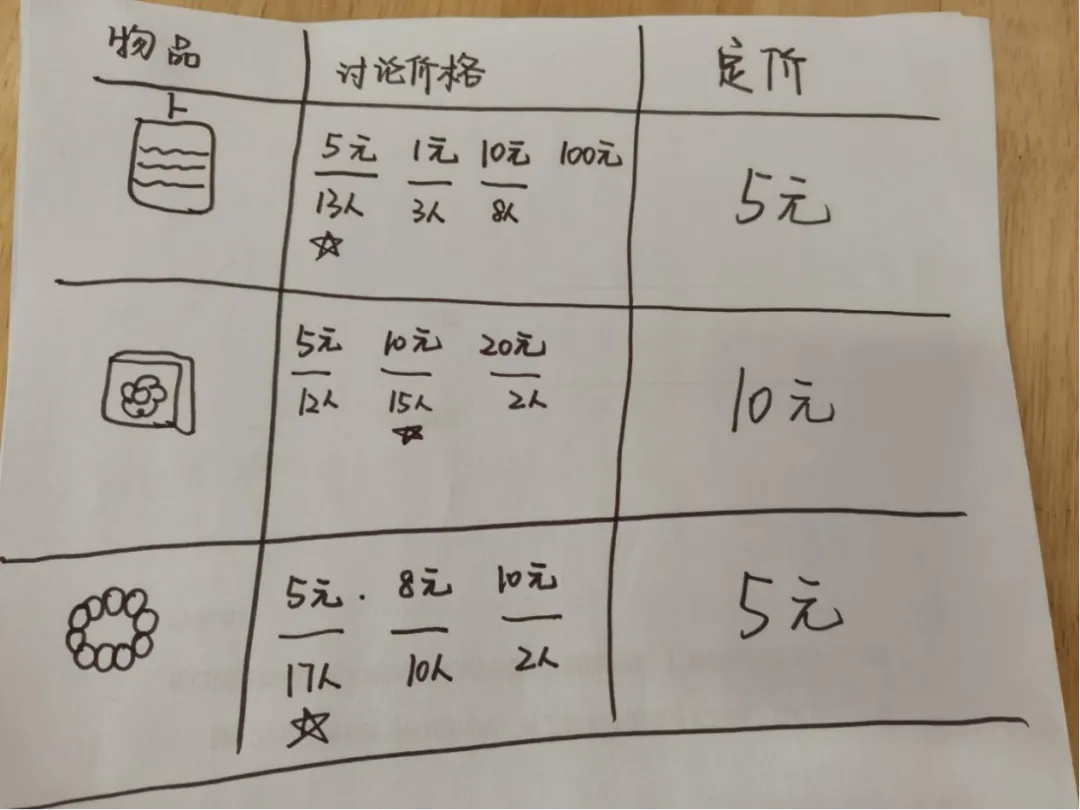 物品 讨论价格 定价
5元 1元 10元 100元
13人 3人 8人
5元
5元 10元 20元
12人 15人 2人
10元
5元. 8元 10元
17人 10人 2人
5元